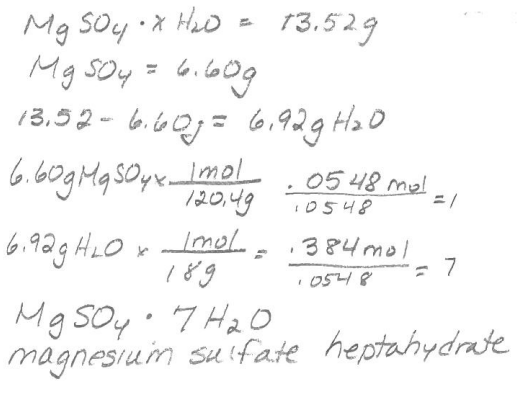 MgSO₄ · x H₂O = 13.52g
MgSO₄ = 6.60g
13.52 - 6.60g = 6.92g H₂O
6.60g MgSO₄ x 1mol / 120.4g .0548 mol / .0548 = 1
6.92g H₂O x 1mol / 18g = .384 mol / .0548 = 7
MgSO₄ · 7 H₂O
magnesium sulfate heptahydrate